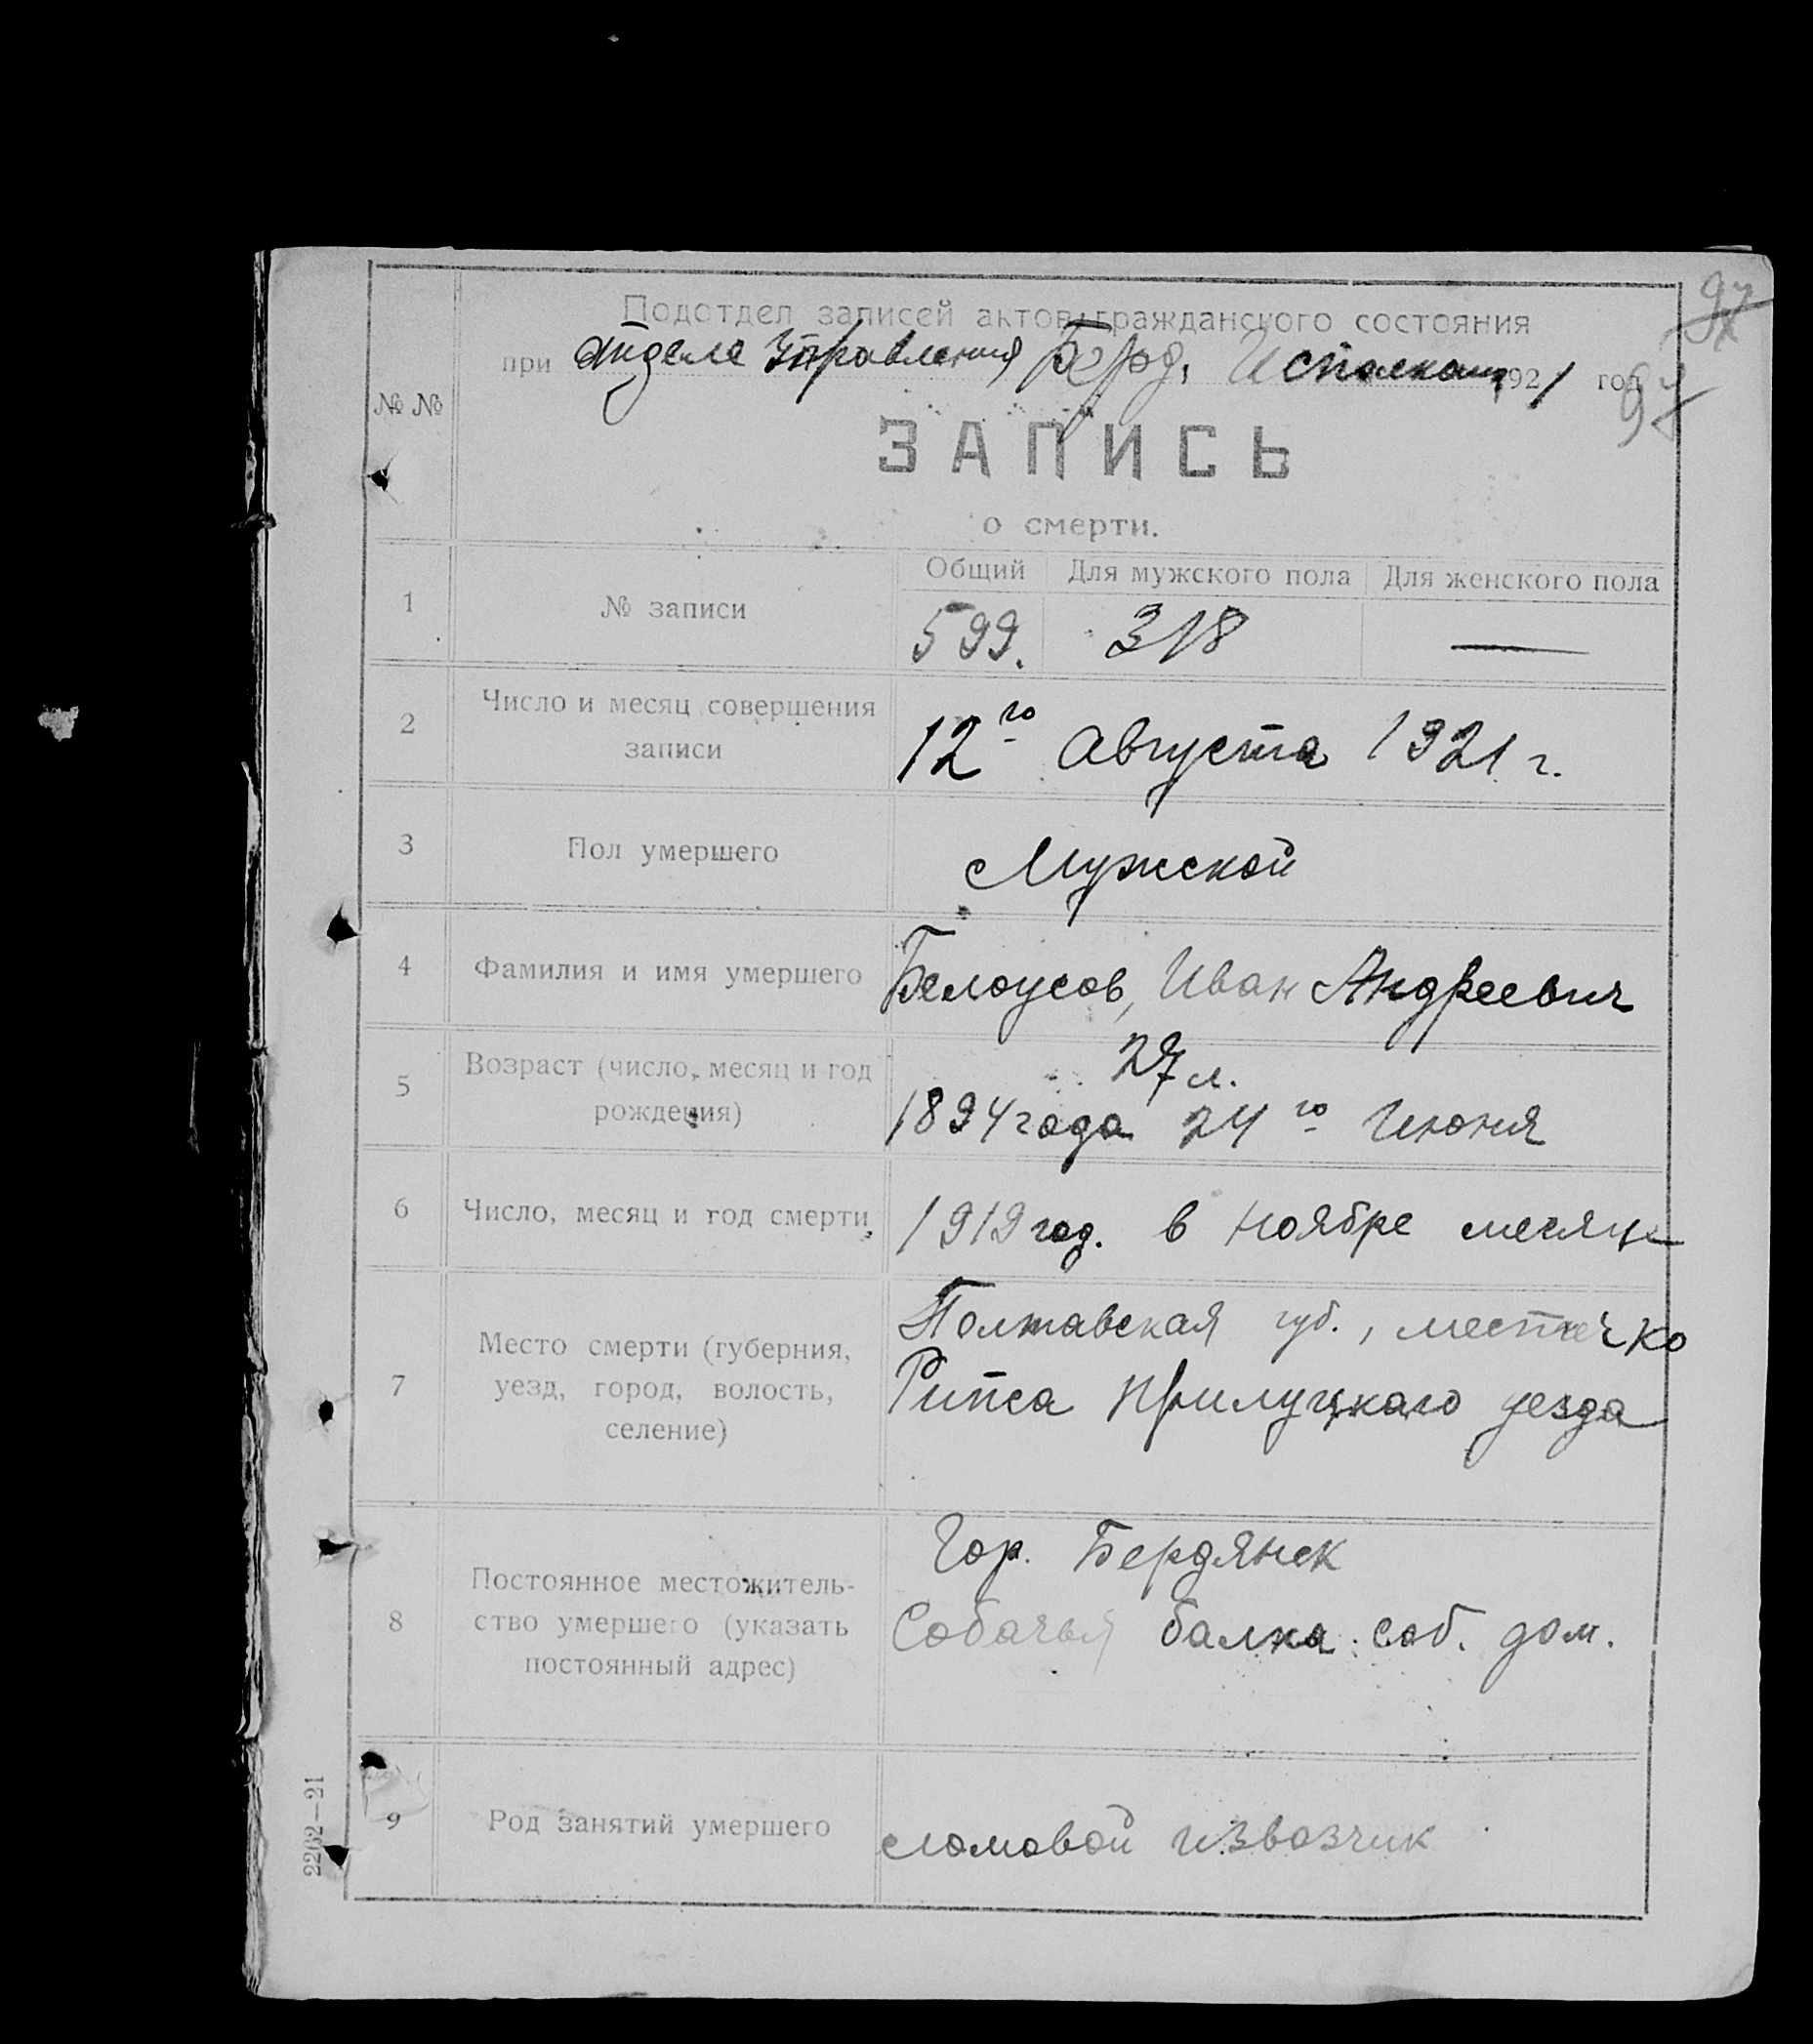 Подотдел записей актов гражданского состояния
при отделе Управления Берд. Исполкома 1921 год
№ №
ЗАПИСЬ
о смерти.
Общий Для мужского пола Для женского пола
1 № записи 599. 318 —
2 Число и месяц совершения
записи
12го Августа 1921 г.
3 Пол умершего Мужской
4 Фамилия и имя умершего Белоусов, Иван Андреевич
5 Возраст (число, месяц и год
рождения)
27 л.
1894 года 24го Июня
6 Число, месяц и год смерти 1919 год. в Ноябре месяце
7 Место смерти (губерния,
уезд, город, волость,
селение)
Полтавская губ., местечко
Рипса Прилуцкаго уезда
8 Постоянное местожитель-
ство умершего (указать
постоянный адрес)
Гор. Бердянск
Собачья балка соб. дом.
9 Род занятий умершего ломовой извозчик
2262—21